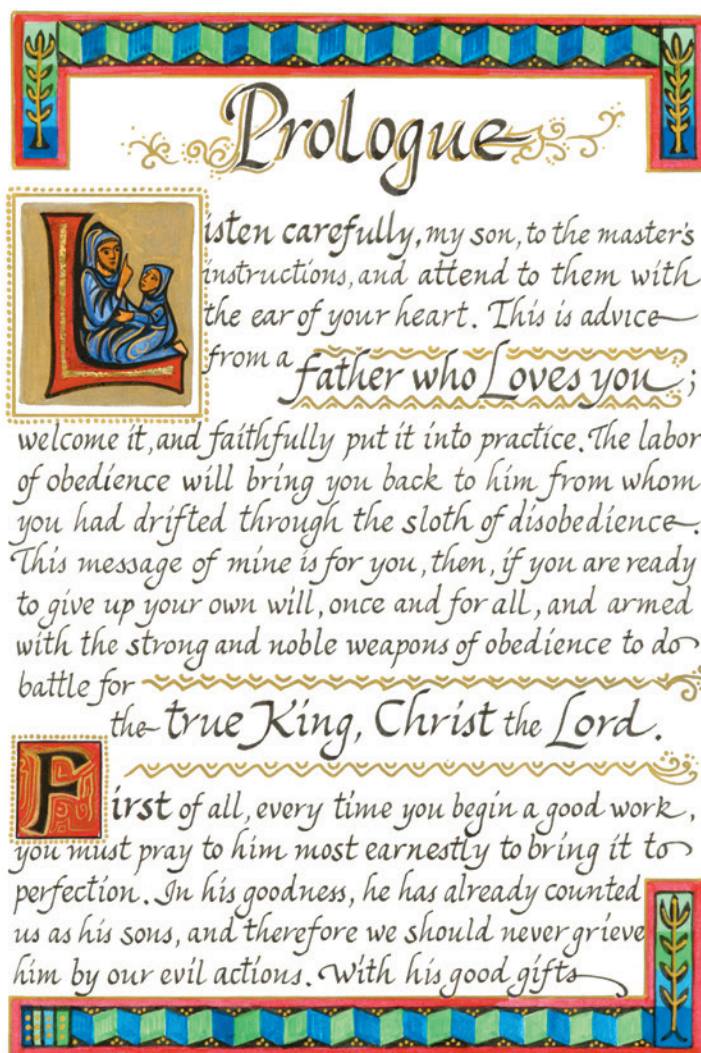 Prologue
Listen carefully, my son, to the master's
instructions, and attend to them with
the ear of your heart. This is advice
from a father who Loves you;
welcome it, and faithfully put it into practice. The labor
of obedience will bring you back to him from whom
you had drifted through the sloth of disobedience.
This message of mine is for you, then, if you are ready
to give up your own will, once and for all, and armed
with the strong and noble weapons of obedience to do
battle for
the true King, Christ the Lord.
First of all, every time you begin a good work,
you must pray to him most earnestly to bring it to
perfection. In his goodness, he has already counted
us as his sons, and therefore we should never grieve
him by our evil actions. With his good gifts